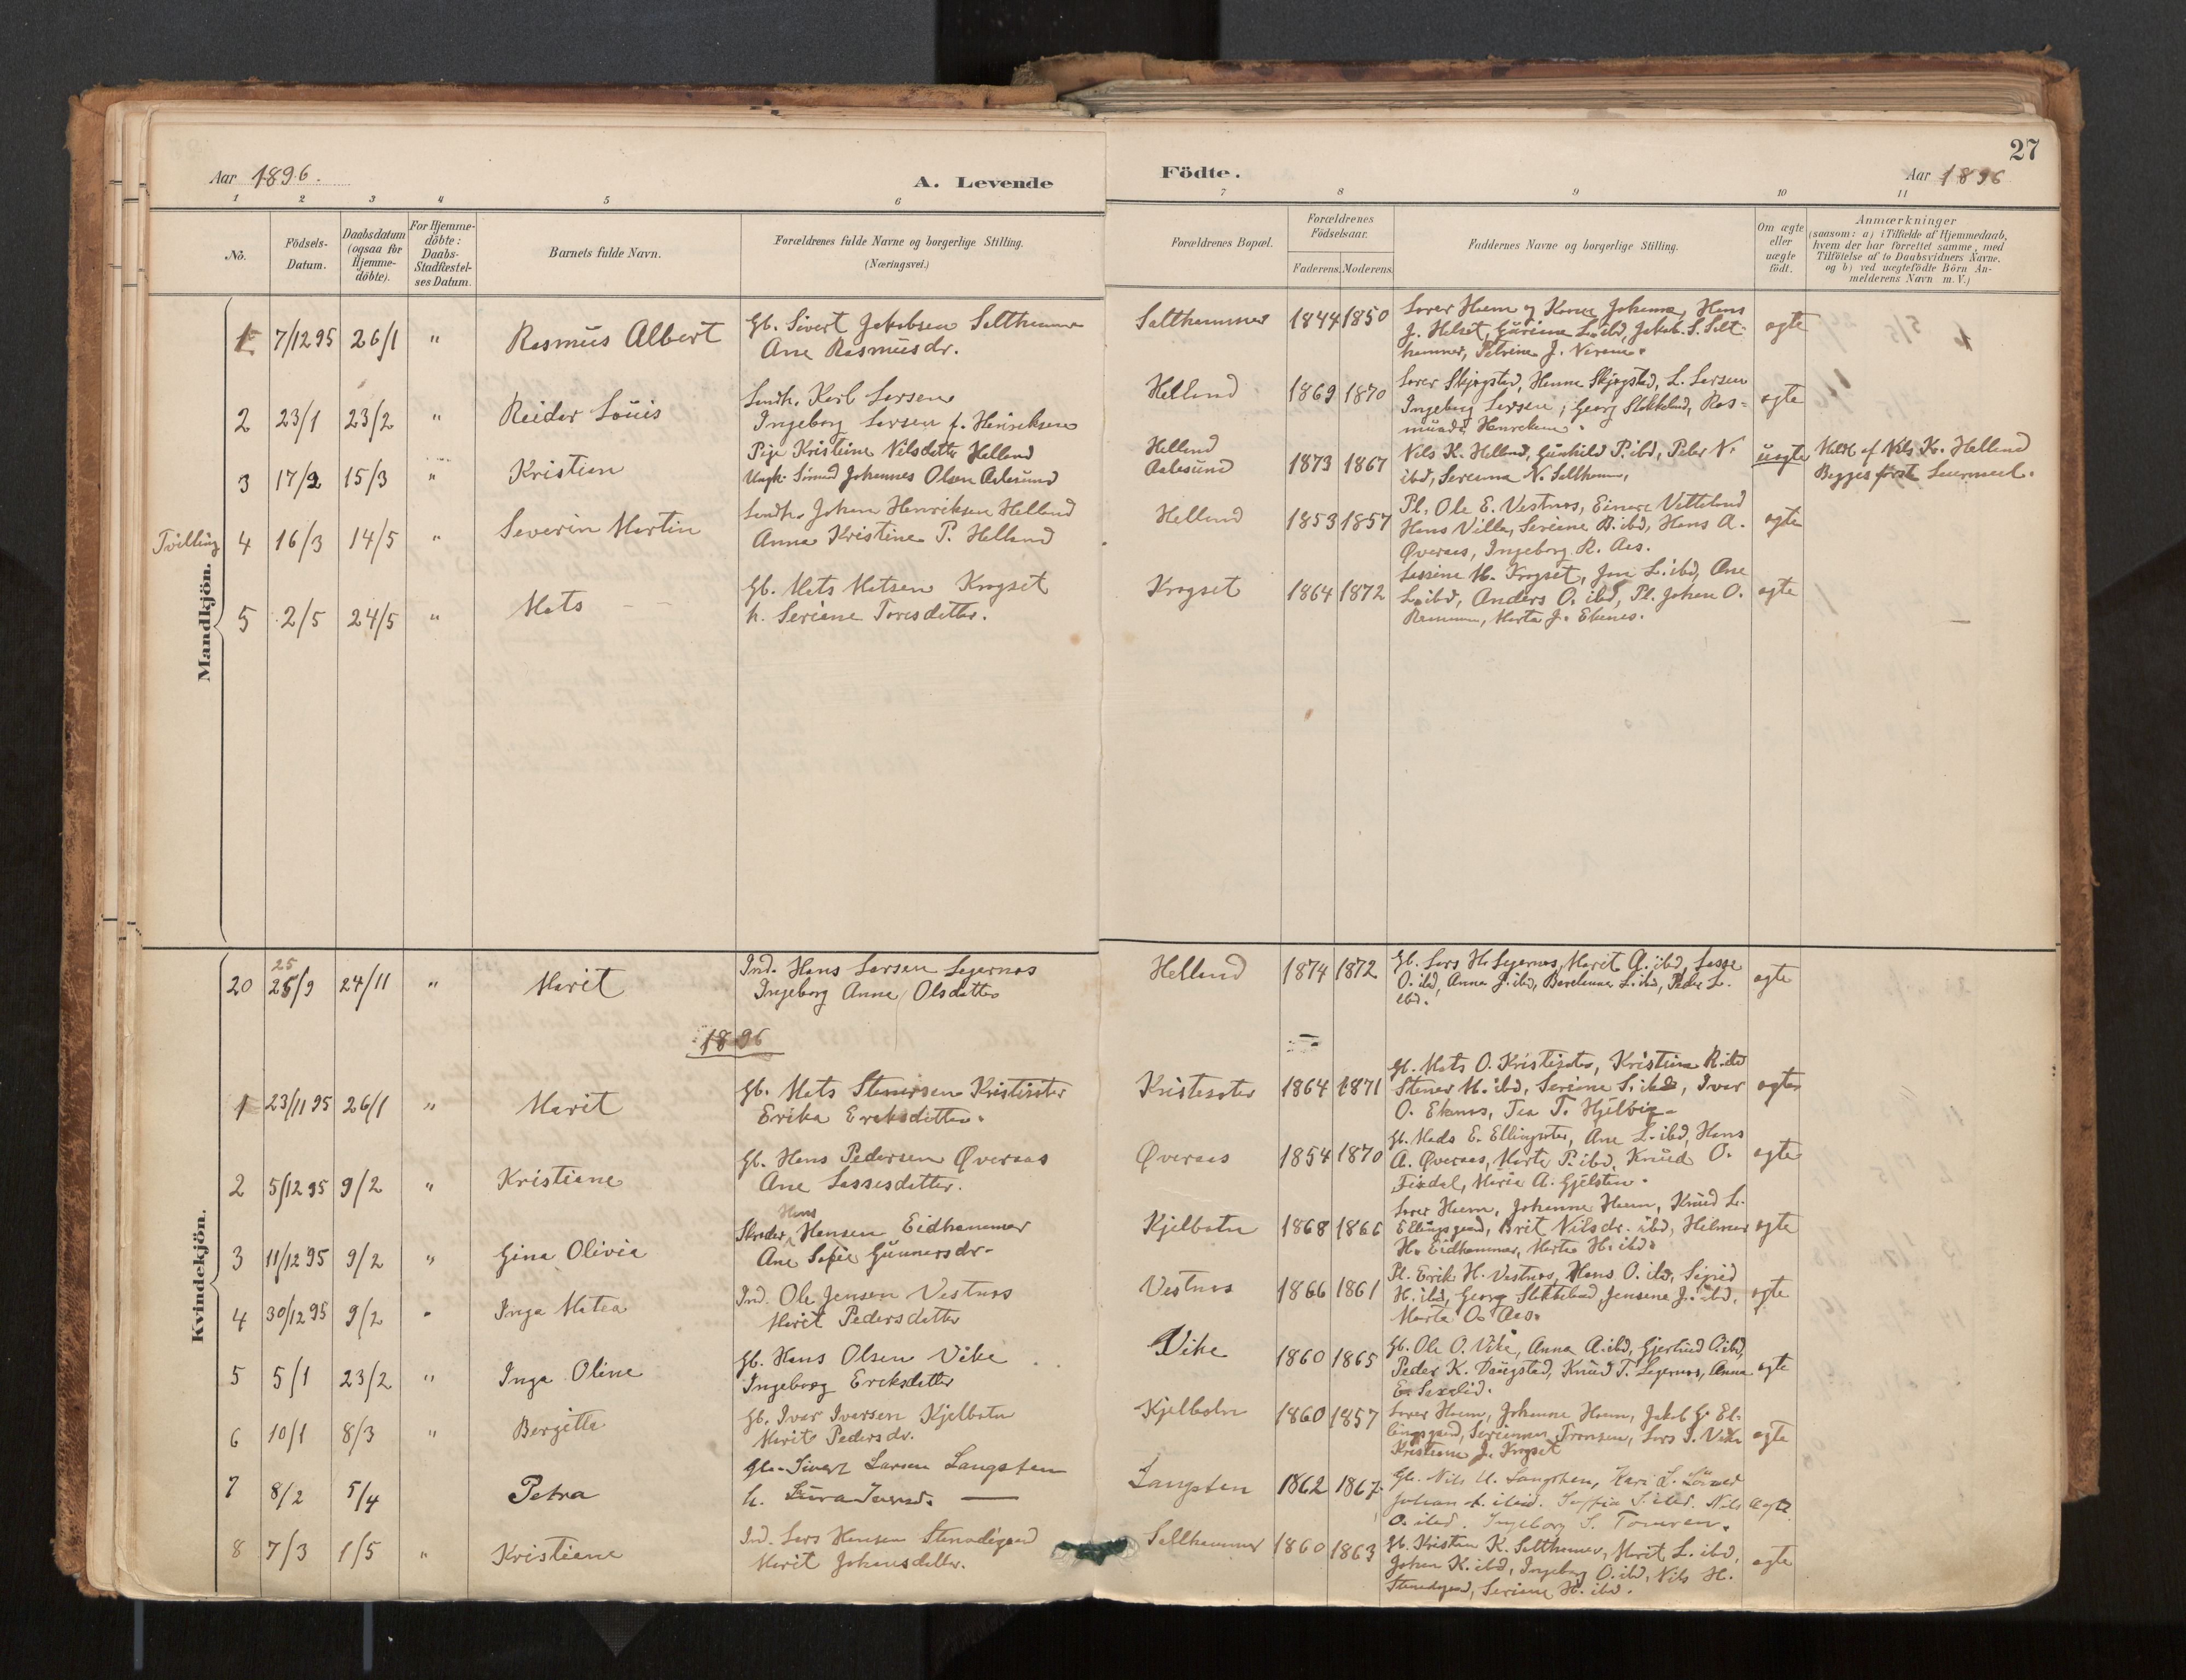 27
Aar 1896.
A. Levende
Födte.
Aar 1896
1 2 3 4 5 6 7 8 9 10 11
No.
Födsels-Datum.
Daabsdatum (ogsaa for Hjemme-döbte).
For Hjemme-döbte: Daabs-Stadfæstel-ses Datum.
Barnets fulde Navn.
Forældrenes fulde Navne og borgerlige Stilling.
(Næringsvei.)
Forældrenes Bopæl.
Forældrenes Födselsaar.
Faderens. Moderens.
Faddernes Navne og borgerlige Stilling.
Om ægte eller uægte födt.
Anmærkninger
(saasom: a) i Tilfælde af Hjemmedaab,
hvem der har forrettet samme, med
Tilföielse af to Daabsvidners Navne.
og b) ved uægtefödte Börn An-
melderens Navn m. V.)
Mandkjön.
1 7/12 95 26/1 " Rasmus Albert
Gb. Sivert Jakobsen Salthammer
Ane Rasmusdr.
Salthammer 1844 1850
Lorer Hoem og Kone Johanna, Hans
J. Helset, Gurine L. ibd, Jakob S. Salt-
hammer, Petrine J.
ægte
2 23/1 23/2 " Reidar Louis
Landh. Karl Larsen
Ingeborg Larsen f. Henriksen
Helland 1869 1870
Lorer Skjegstad, Hanna Skjegstad, L. Larsen
Ingeborg Larsen, Georg Stokkeland, Ras-
ægte
3 17/2 15/3 " Kristian
Pige Kristine Nilsdatter Helland
Ungk. Johannes Olsen Aalesund
Helland
Aalesund 1873 1867
Nils K. Helland, Gunhild P. ibd, Peder N.
ibd, Serianna N.
uægte
Meldt af Nils K. Helland
Begges første Leiermaal.
Tvilling 4 16/3 14/5 " Severin Martin
Landh. Johan Henriksen Helland
Anna Kristine P. Helland
Helland 1853 1857
Pl. Ole E. Vestnæs, Einar Vetteland
Hans Villa, Seriane B. ibd, Hans A.
Øveraas, Ingeborg R. Aas.
ægte
5 2/5 24/5 " Mats
Gb. Mats Matsen Krogset
h. Seriane Toresdatter.
Krogset 1864 1872
Lassine M. Krogset, Jon L. ibd, Ane
L. ibd, Anders O. ibd, Pl. Johan O.
Marta J. Ekenes.
ægte
Kvindekjön.
25
20 25/9 24/11 " Marit
Ind. Hans Larsen Lejernæs
Ingeborg Anna Olsdatter
Helland 1874 1872
Gb. Lars H. Lejernæs, Marit A. ibd, Lasse
O. ibd, Anna J. ibd, L. ibd, Peder L.
ibd.
ægte
1896
1 23/11 95 26/1 " Marit
Gb. Mats Stenersen Kristisæter
Erika Eriksdatter.
Kristesæter 1864 1871
Gb. Mats O. Kristisæter, Kristine R. ibd
Stener M. ibd, Serine S. ibd, Ivar
O. Ekenæs, Tea T. Hjelvig.
ægte
2 5/12 95 9/2 " Kristiane
Gb. Hans Pedersen Øveraas
Ane Lassesdatter.
Øveraas 1854 1870
Gb. Mads E. Ellingsæter, Ane L. ibd, Hans
A. Øveraas, Marte P. ibd, Knud O.
Fixdal, Maria A. Gjelsten.
ægte
3 11/12 95 9/2 " Gina Olivia
Hans
Skræder Hansen Eidhammer
Ane Sofie Gunnersdr.
Kjelbotn 1868 1866
Lorer Hoem, Johanne Hoem, Knud L.
Ellingsgaard, Brit Nilsdr. ibd, Hilmar
H. Eidhammer, Marta H. ibd.
ægte
4 30/12 95 9/2 " Inga Matea
Ind. Ole Jensen Vestnæs
Marit Pedersdatter
Vestnæs 1866 1861
Pl. Erik H. Vestnæs, Hans O. ibd, Sigrid
H. ibd, Georg Stokkeland, Jensine J. ibd,
Marta O. Aas.
ægte
5 5/1 23/2 " Inga Oline
Gb. Hans Olsen Vike
Ingeborg Eriksdatter
Vike 1860 1865
Gb. Ole O. Vike, Anna A. ibd, Gjertrud O. ibd,
Peder K. Daugstad, Knud T. Lejernæs, Anna
E.
ægte
6 10/1 8/3 " Bergitte
Gb. Ivar Iversen Kjelbotn
Marit Pedersdr.
Kjelbotn 1860 1857
Lorer Hoem, Johanne Hoem, Jakob G. El-
lingsgaard, Serianna Tronsen, Lars I. Vike
Kristiane J. Krogset
ægte
7 8/2 5/4 Petra
Gb. Sivert Larsen Langsten
h.
Langsten 1862 1867
Gb. Nils U. Langsten, Kari L.
Johan L. ibid. Sofia S. ibid. Nils
O. ibid. Ingeborg S. Tomren.
ægte
8 7/3 1/5 " Kristiane
Ind. Lars Hansen Stenødegaard
Marit Johansdatter.
Salthammer 1860 1863
Gb. Kristen K. Salthammer, Marit L. ibd,
Johan K. ibd, Ingeborg O. ibd, Nils H.
Stenødegaard, Seriane H. ibd.
ægte